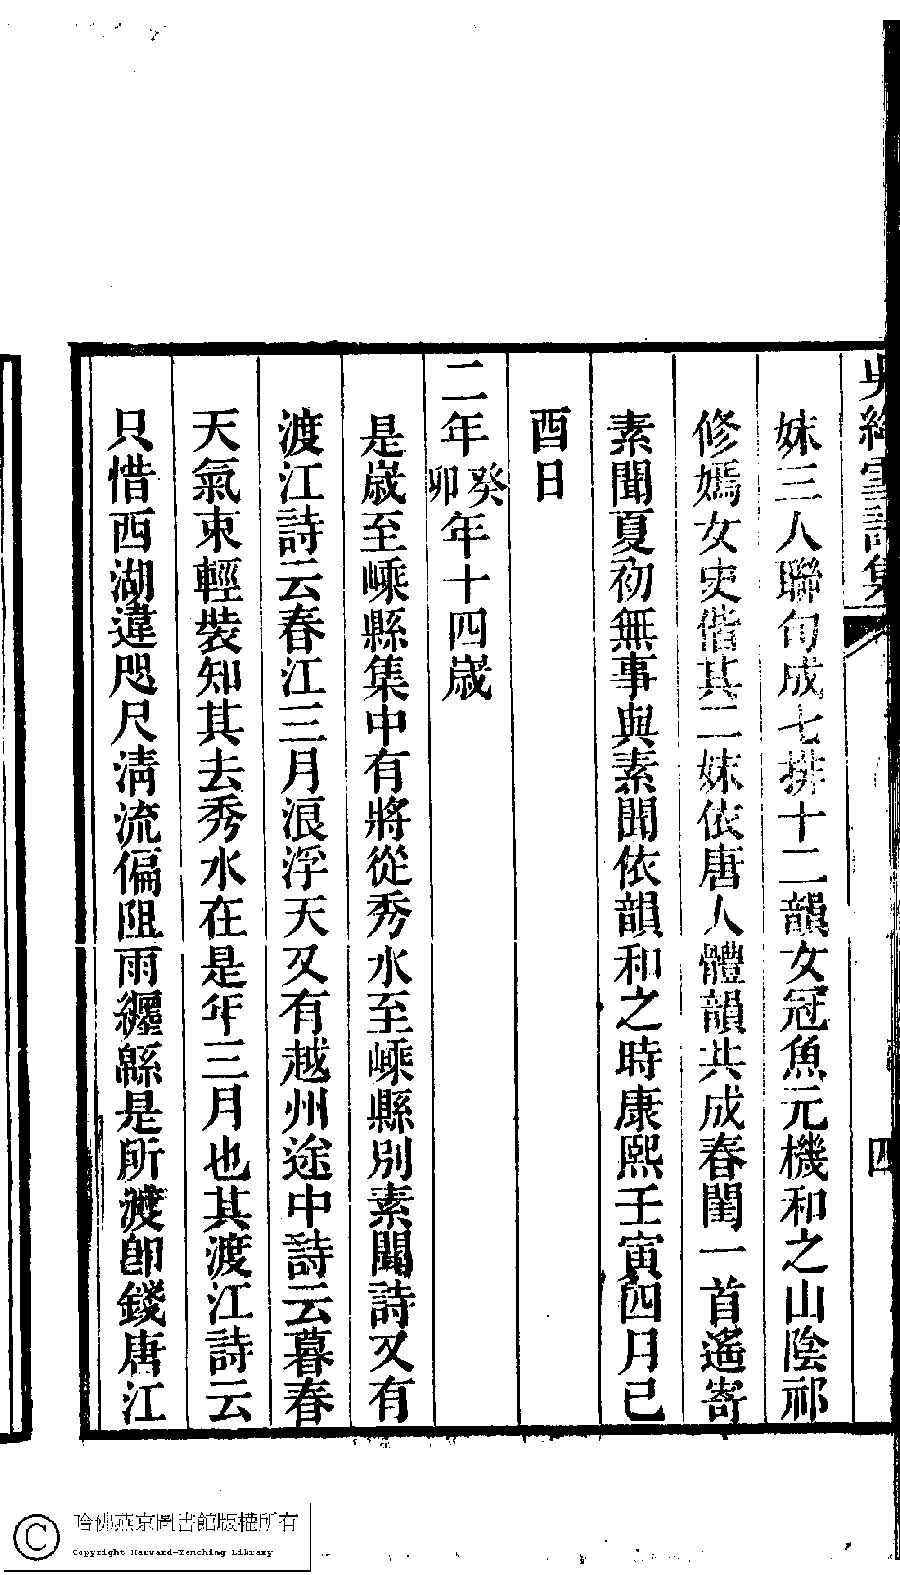 吳絳雪詩集
四
妹三人聯句成七排十二韻女冠魚元機和之山陰祁
修嫣女史偕其二妹依唐人體韻共成春閨一首遙寄
素聞夏初無事與素聞依韻和之時康熙壬寅四月己
酉日
二年癸卯年十四歲
是歲至嵊縣集中有將從秀水至嵊縣別素聞詩又有
渡江詩云春江三月浪浮天又有越州途中詩云暮春
天氣束輕裝知其去秀水在是年三月也其渡江詩云
只惜西湖違咫尺清流偏阻雨纏緜是所渡卽錢唐江
哈佛燕京圖書館版權所有
Copyright Harvard-Yenching Library